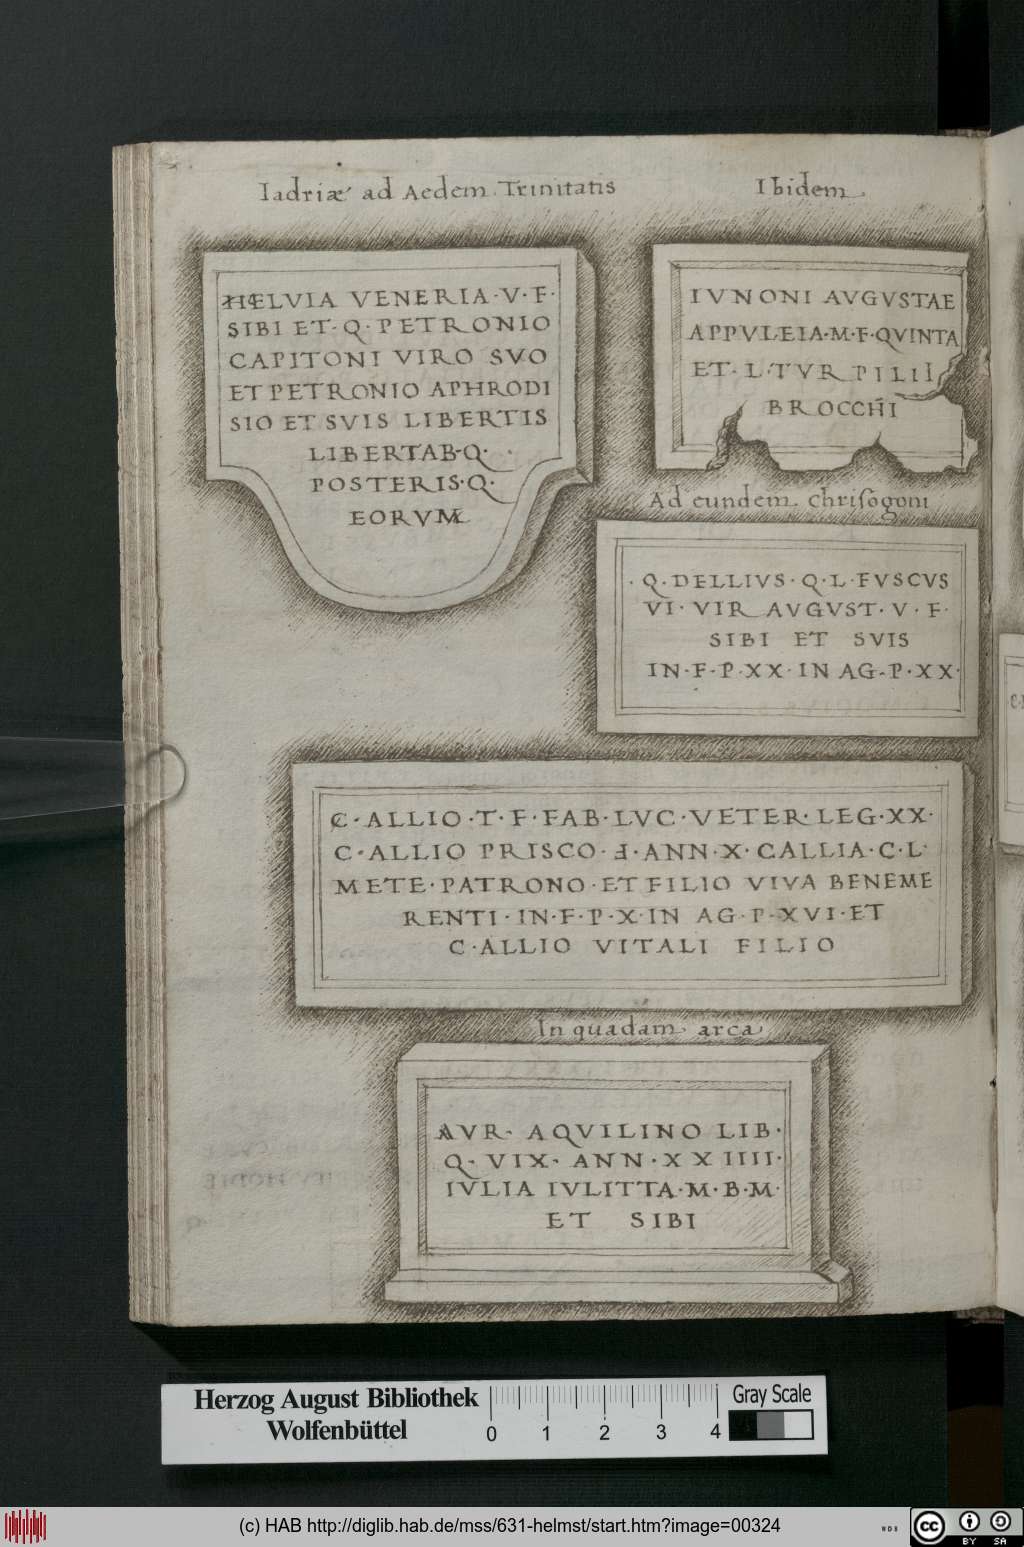 Iadriæ ad Aedem Trinitatis
HELVIA VENERIA·V·F·
SIBI ET·Q·PETRONIO
CAPITONI VIRO SVO
ET PETRONIO APHRODI
SIO ET SVIS LIBERTIS
LIBERTAB·Q·
POSTERIS·Q·
EORVM
Ibidem
IVNONI AVGVSTAE
APPVLEIA·M·F·QVINTA
ET·L·TVRPILII
BROCCHI
Ad eundem Chrisogoni
·Q·DELLIVS·Q·L·FVSCVS
VI·VIR AVGVST·V·F·
SIBI ET SVIS
IN·F·P·XX·IN AG·P·XX·
C·ALLIO·T·F·FAB·LVC·VETER·LEG·XX·
C·ALLIO PRISCO·Ⅎ·ANN·X·CALLIA·C·L·
METE·PATRONO·ET FILIO VIVA BENEME
RENTI·IN·F·P·X·IN AG·P·XVI·ET
C·ALLIO VITALI FILIO
In quadam arca
AVR· AQVILINO LIB·
Q·VIX·ANN·XXIIII·
IVLIA IVLITTA·M·B·M·
ET SIBI
Herzog August Bibliothek
Wolfenbüttel
0 1 2 3 4
Gray Scale
(c) HAB http://diglib.hab.de/mss/631-helmst/start.htm?image=00324
WDB
cc
BY SA